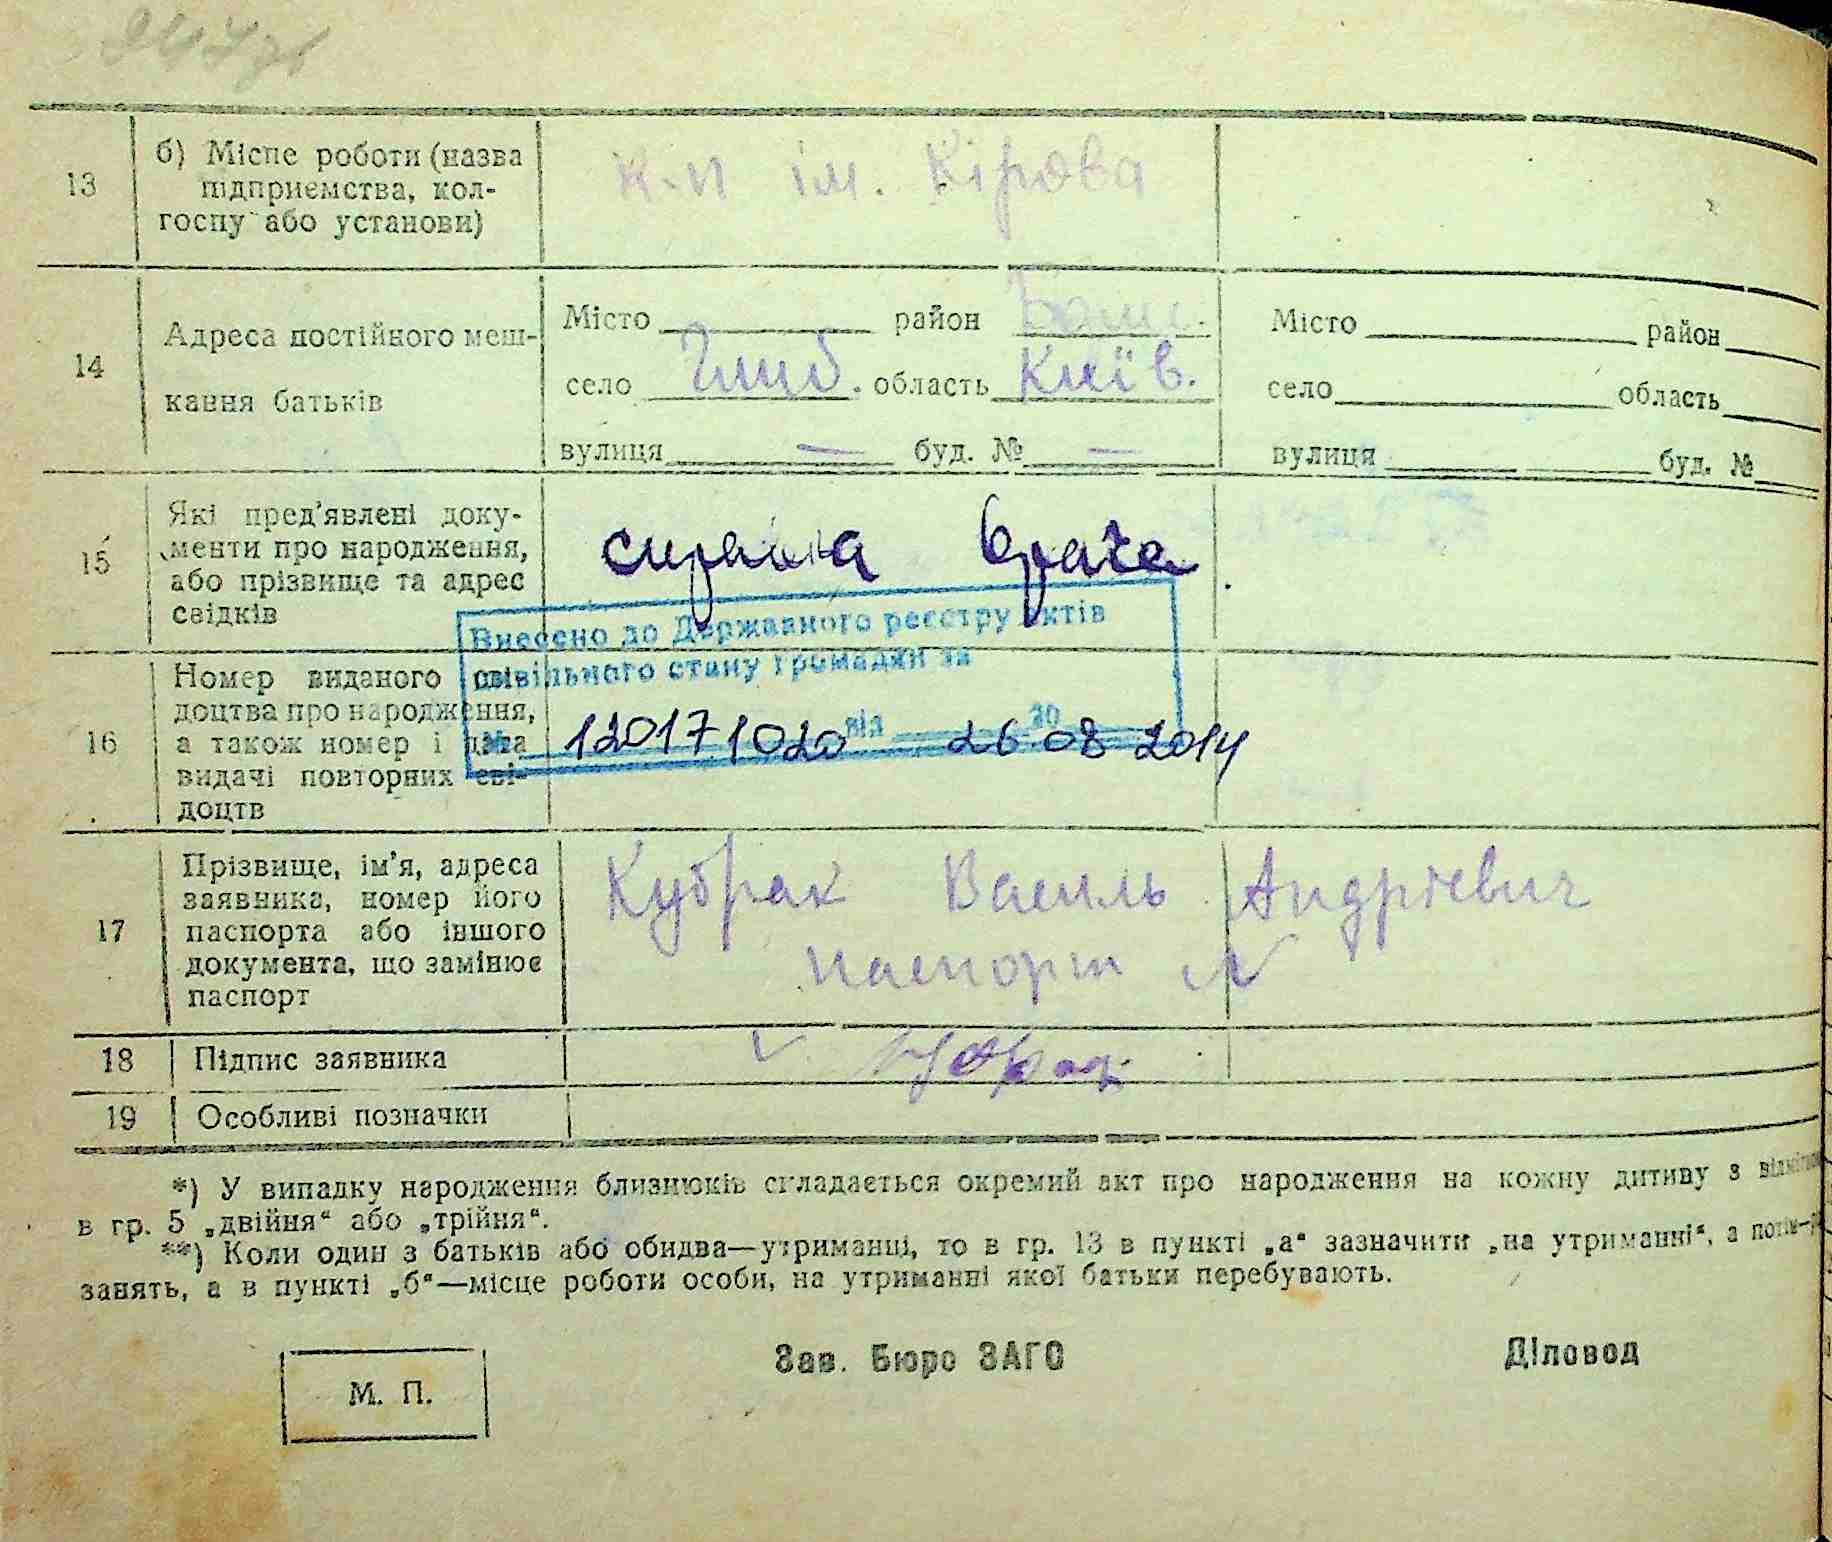 13
б) Місце роботи (назва
підприємства, кол-
госпу або установи)
к-п ім. Кірова
14
Адреса постійного меш-
кання батьків
Місто район
село область Київ.
вулиця — буд. № —
Місто район
село область
вулиця буд. №
15
Які пред’явлені доку-
менти про народження,
або прізвище та адрес
свідків
справка врача
16
Номер виданого сві-
доцтва про народження,
а також номер і дата
видачі повторних сві-
доцтв
Внесено до Державного реєстру актів
цивільного стану громадян за
№ 12017 1020 від 26 08 20 2014
17
Прізвище, ім’я, адреса
заявника, номер його
паспорта або іншого
документа, що замінює
паспорт
Кубрак Василь Андрієвич
паспорт N
18
Підпис заявника
Кубрак
19
Особливі позначки
*) У випадку народження близнюків складається окремий акт про народження на кожну дитину з
в гр. 5 „двійня“ або „трійня“.
**) Коли один з батьків або обидва—утриманці, то в гр. 13 в пункті „а“ зазначити „на утриманні“, а потім—
занять, а в пункті „б“—місце роботи особи, на утриманні якої батьки перебувають.
М. П.
Зав. Бюро ЗАГС
Діловод